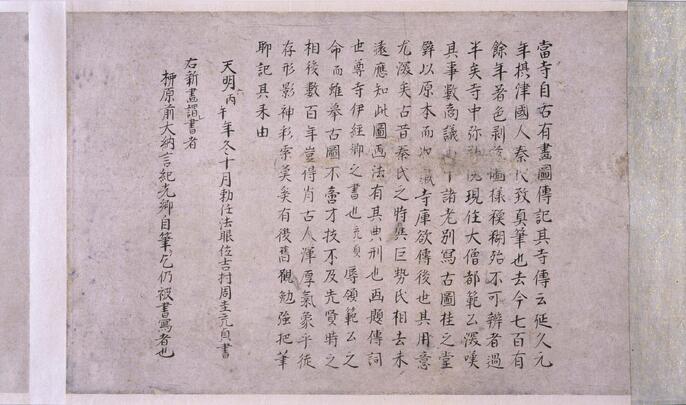 當寺自古有畫圖傳記其寺傳云延久元
年摂津國人秦氏致真筆也去今七百有
餘年著色剥落 樣模糊殆不可辨者過
半矣寺中弥 現住大僧都範公深嘆
其事數商議 下諸老別寫古圖挂之堂
壁以原本而 藏寺庫欲傳後世其用意
尤深矣古昔秦氏之時與巨勢氏相去未
遠應知此圖画法有其典刑也画題傳詞
世尊寺伊経卿之書也充貞辱領範公之
命而雖摹古圖不啻才技不及先賢時之
相後數百年豈得肖古人渾厚氣象乎徒
存形影神彩索莫矣有後觀勉強把筆
聊記其来由
天明丙午年冬十月勅任法眼住吉村周圭充貞書
右新畫讃書者
柳原前大納言紀光卿自筆也仍被書寫者也